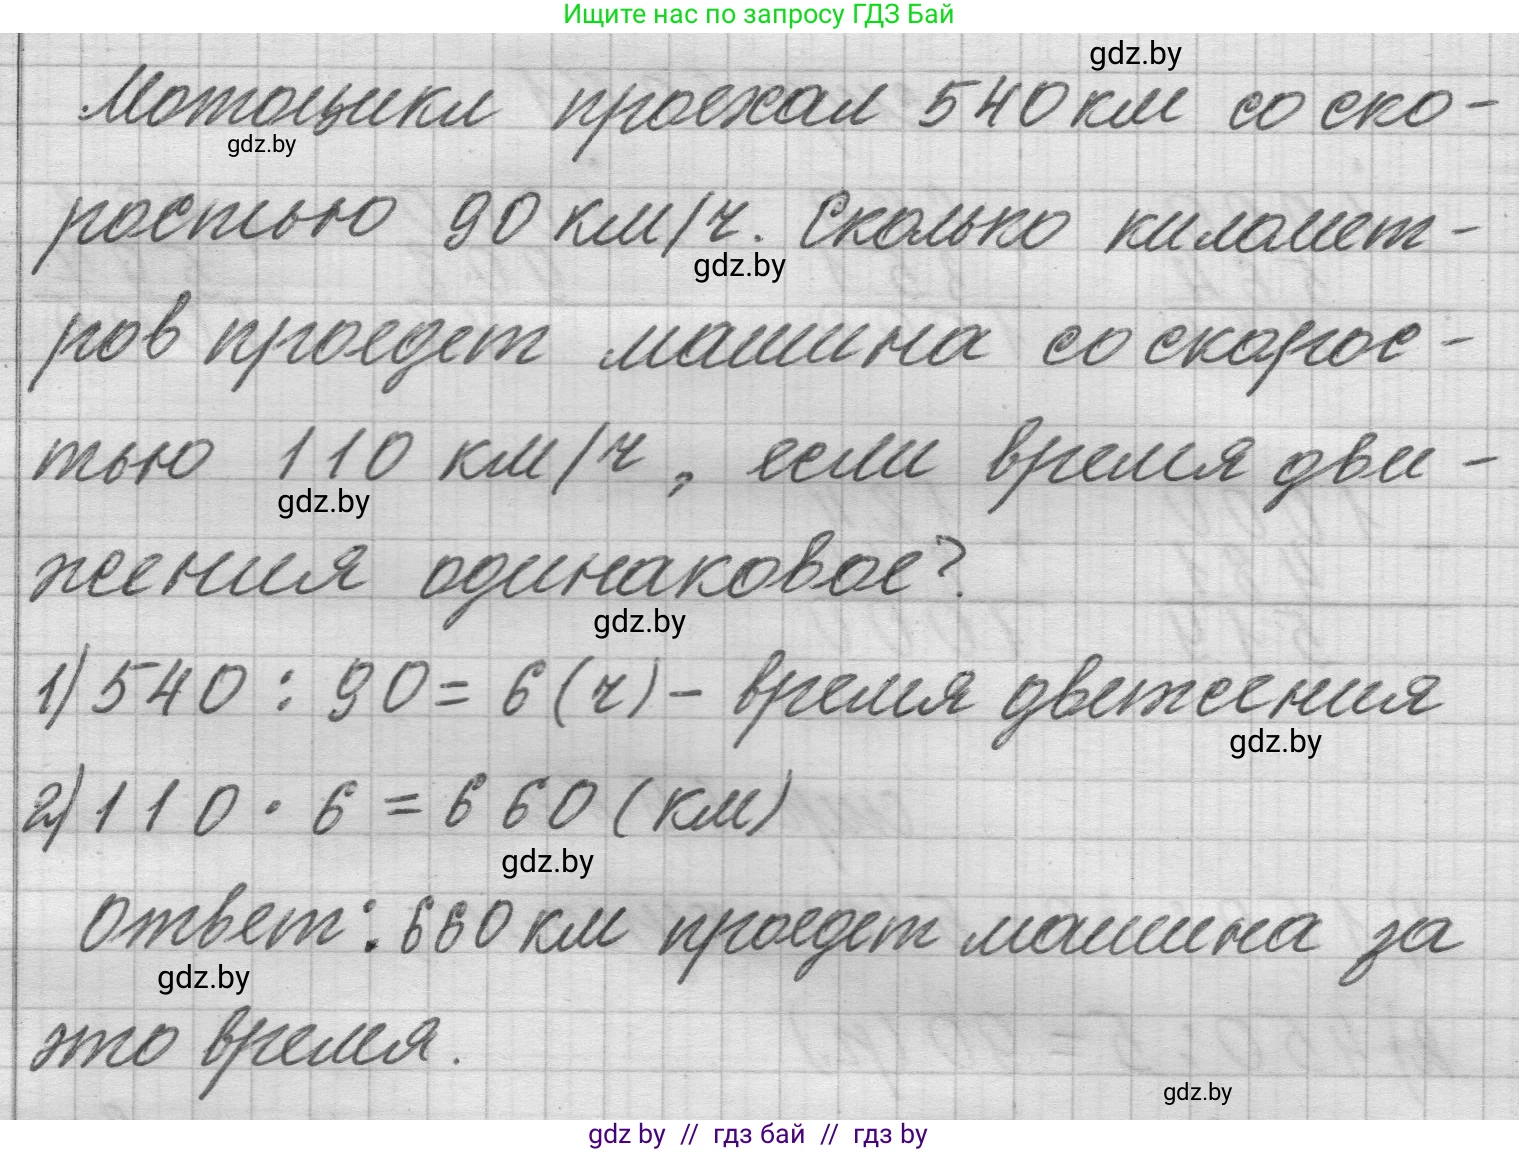 Ищите нас по запросу ГДЗ Бай
gdz.by
Мотоцикл проехал 540 км со ско-
gdz.by
ростью 90 км/ч. Сколько километ-
gdz.by
ров проедет машина со скорос-
тью 110 км/ч, если время дви-
gdz.by
жения одинаковое?
gdz.by
1) 540 : 90 = 6 (ч) - время движения
gdz.by
2) 110 · 6 = 660 (км)
gdz.by
Ответ: 660 км проедет машина за
gdz.by
это время.
gdz.by
gdz by // гдз бай // гдз by